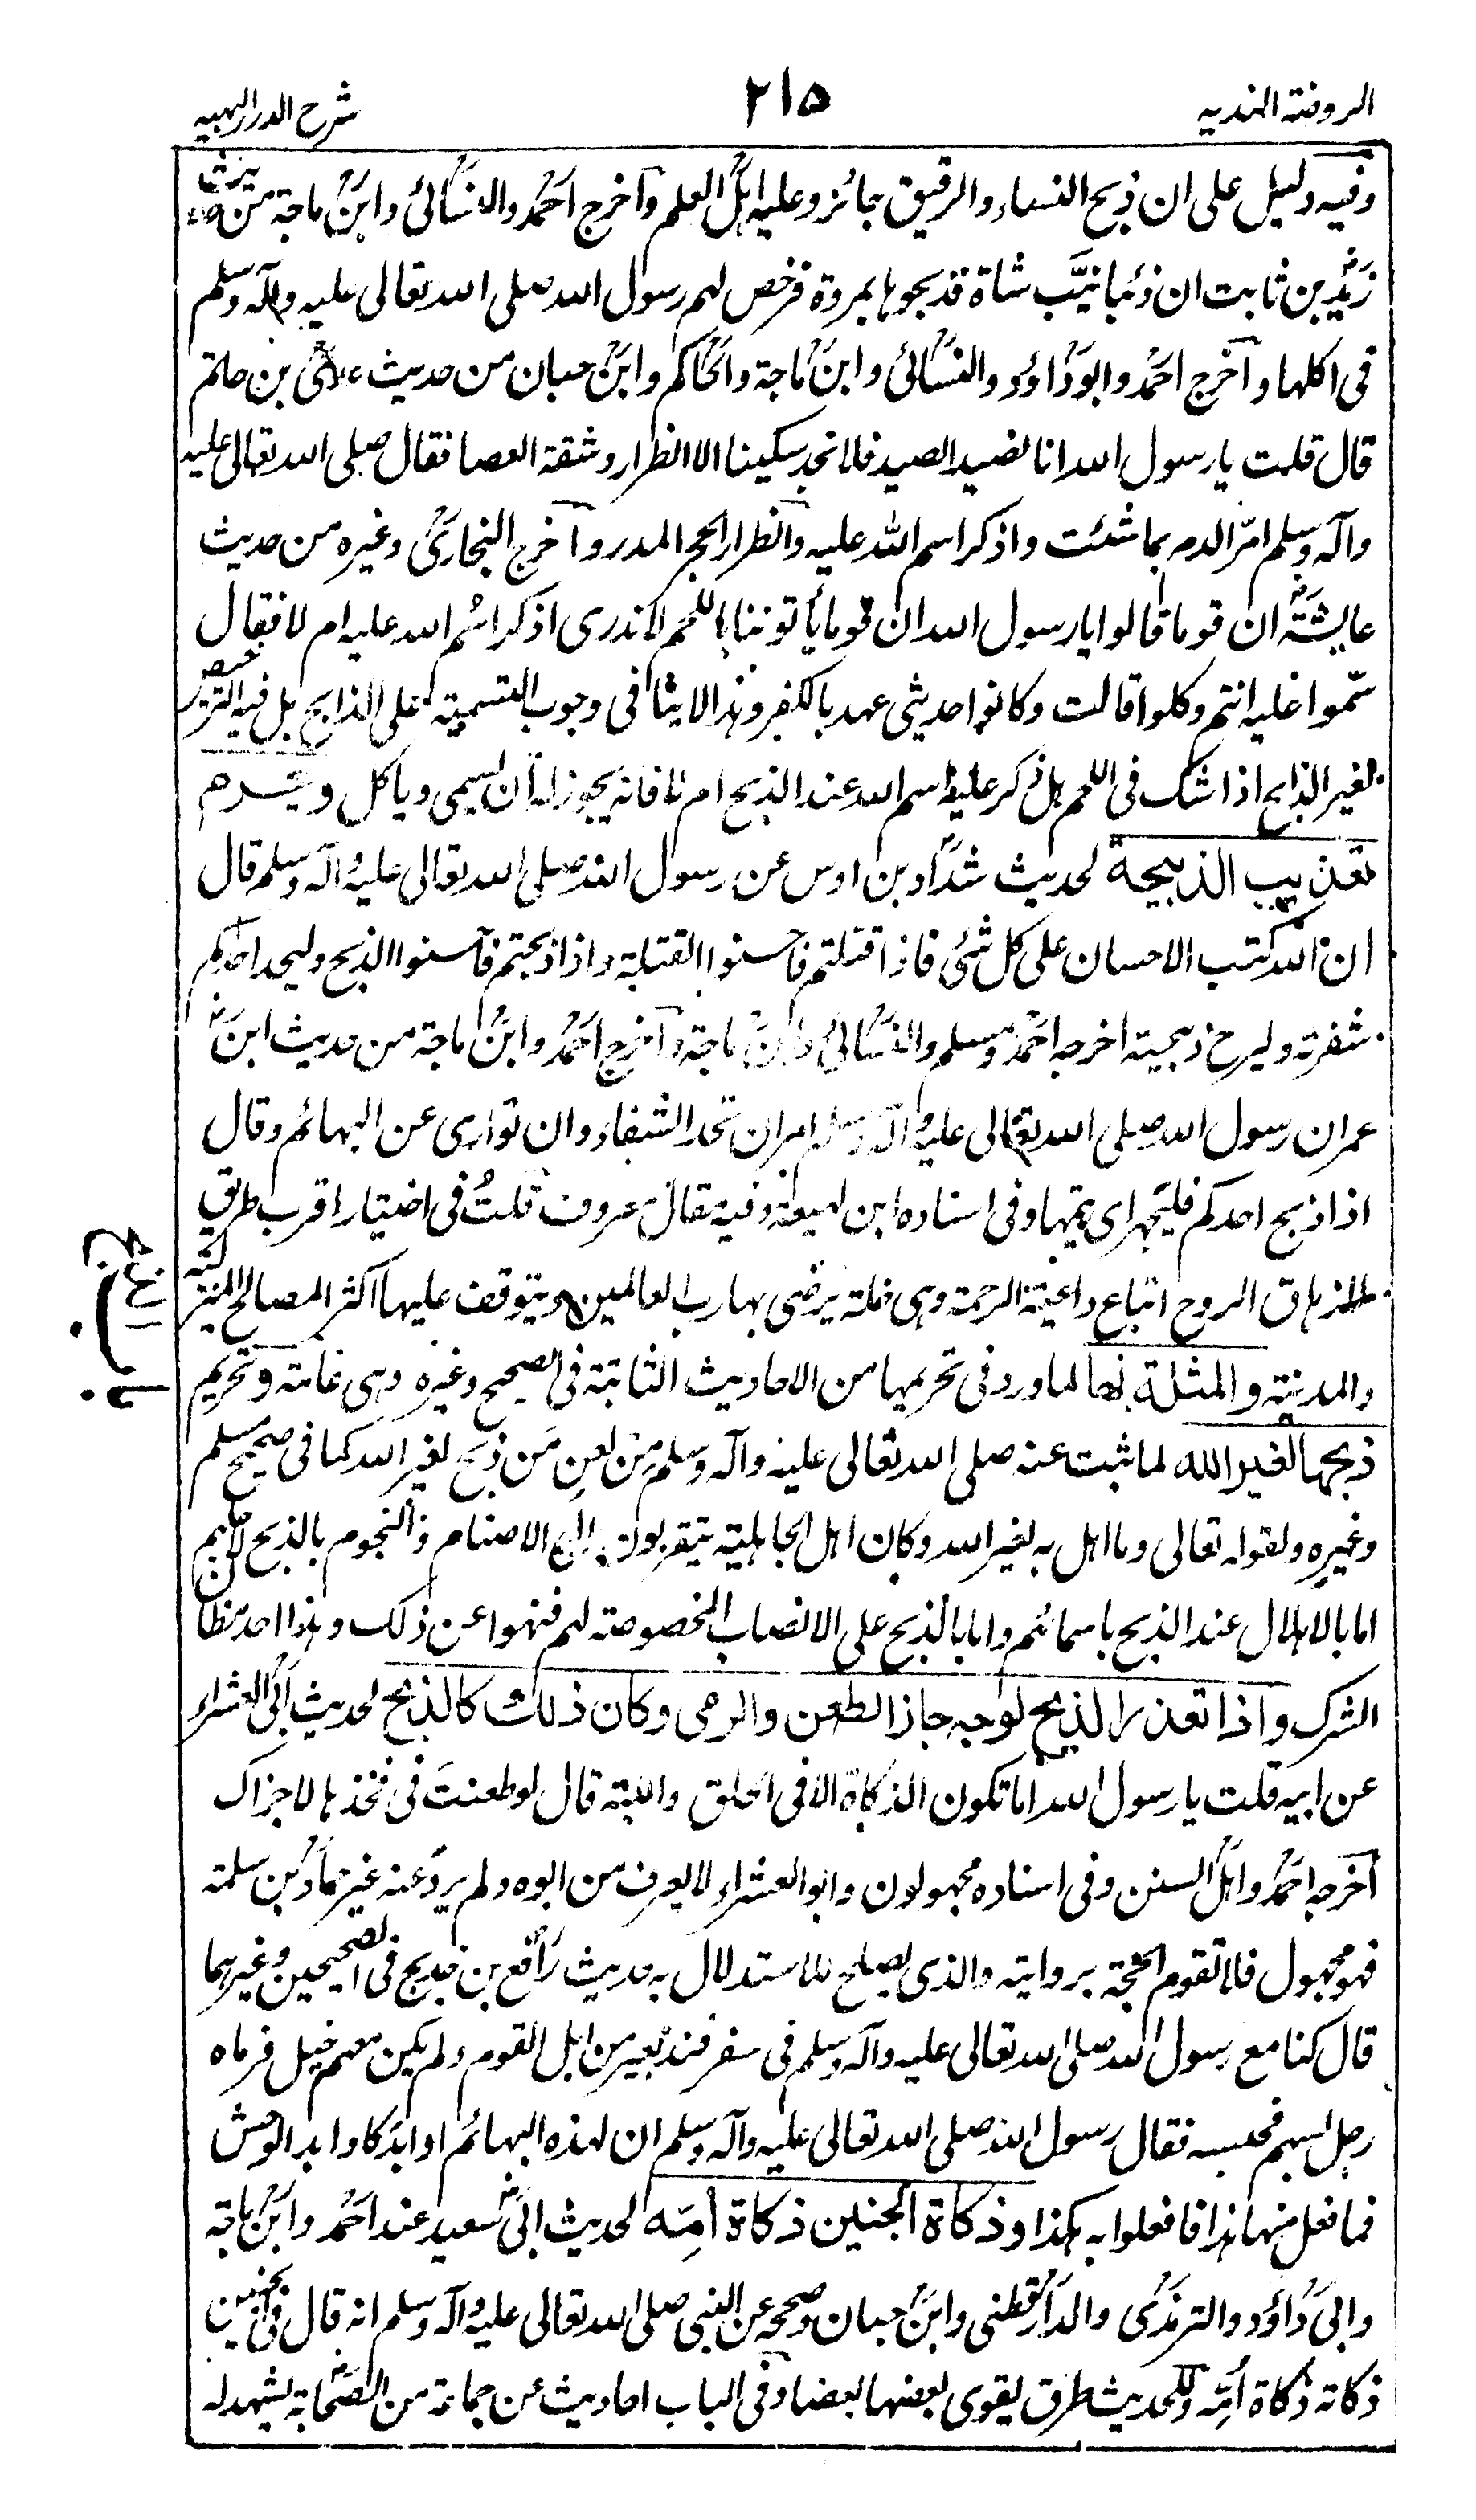 الروضة الندیه
۲۱۵
شرح الدرر البهیه
وفیه دلیل علی ان ذبح النساء والرقیق جائز وعلیه اهل العلم وآخرج احمد والنسائی وابن ماجة من حدیث
زید بن ثابت ان ذئبا نیّب شاة فذبحوها بمروة فرخص لهم رسول الله صلی الله تعالی علیه وآله وسلم
فی اکلها وآخرج احمد وابو داؤد والنسائی وابن ماجة والحاکم وابن حبان من حدیث عدی بن حاتم
قال قلت یارسول الله انا نصید الصید فلا نجد سکینا الا الظرار وشقة العصا فقال صلی الله تعالی علیه
وآله وسلم امرّ الدم بما شئت واذکر اسم الله علیه والظرار الحجر المدر وآخرج البخاری وغیره من حدیث
عایشة ان قوما قالوا یارسول الله ان قوما یأتوننا باللحم لا ندری اذکر اسم الله علیه ام لا فقال
سمّوا علیه انتم وکلوا قالت وکانوا حدیثی عهد بالکفر وهذا لا ینافی وجوب التسمیة علی الذابح بل فیه الترخیص
لغیر الذابح اذا شک فی اللحم هل ذکر علیه اسم الله عند الذبح ام لا فانه یجوز له ان یسمی ویاکل ویحرم
تعذیب الذبیحة لحدیث شداد بن اوس عن رسول الله صلی الله تعالی علیه وآله وسلم قال
ان الله کتب الاحسان علی کل شئ فاذا قتلتم فاحسنوا القتلة واذا ذبحتم فآحسنوا الذبح ولیحد احدکم
شفرته ولیرح ذبیحته اخرجه احمد ومسلم والنسائی وابن ماجة وآخرج احمد وابن ماجة من حدیث ابن
عمر ان رسول الله صلی الله تعالی علیه وآله وسلم امر ان تحد الشفار وان تواری عن البهائم وقال
اذا ذبح احدکم فلیجهز ای یتمها وفی اسناده ابن لهیعة وفیه مقال معروف قلتُ فی اختیار اقرب طریق
لازهاق الروح اتباع داعیة الرحمة وهی خلة یرضی بها رب العالمین ویتوقف علیها اکثر المصالح المنزلیة
والمدنیة والمثلة بها لما ورد فی تحریمها من الاحادیث الثابتة فی الصحیح وغیره وهی عامة وتحریم
ذبحها لغیر الله لما ثبت عنه صلی الله تعالی علیه وآله وسلم من لعن من ذبح لغیر الله کما فی صحیح مسلم
وغیره ولقوله تعالی وما اهل به لغیر الله وکان اهل الجاهلیة یتقربون الی الاصنام والنجوم بالذبح لاجلهم
اما بالاهلال عند الذبح باسمائهم واما بالذبح علی الانصاب المخصوصة لهم فنهوا عن ذلک وهذا احد مظان
الشرک واذا تعذر الذبح لوجه جاز الطعن والرمی وکان ذلك کالذبح لحدیث ابی العشراء
عن ابیه قلت یارسول الله اما تکون الذکاة الا فی الحلق واللبة قال لو طعنتَ فی فخذها لاجزاک
آخرجه احمد واهل السنن وفی اسناده مجهولون وابو العشراء لا یعرف من ابوه ولم یرو عنه غیر حماد بن سلمة
فهو مجهول فلا تقوم الحجة بروایته والذی یصلح للاستدلال به حدیث رافع بن خدیج فی الصحیحین وغیرهما
قال کنا مع رسول الله صلی الله تعالی علیه وآله وسلم فی سفر فند بعیر من ابل القوم ولم یکن معهم خیل فرماه
رجل بسهم فحبسه فقال رسول الله صلی الله تعالی علیه وآله وسلم ان لهذه البهائم اوابد کاوابد الوحش
فما فعل منها هذا فافعلوا به هکذا وذکاة الجنین ذکاة اُمِّه لحدیث ابی سعید عند احمد وابن ماجة
وابی داؤد والترمذی والدارقطنی وابن حبان وصححه عن النبی صلی الله تعالی علیه وآله وسلم انه قال فی الجنین
ذکاته ذکاة اُمّه وللحدیث طرق یقوی بعضها بعضا وفی الباب احادیث عن جماعة من الصحابة یشهد له